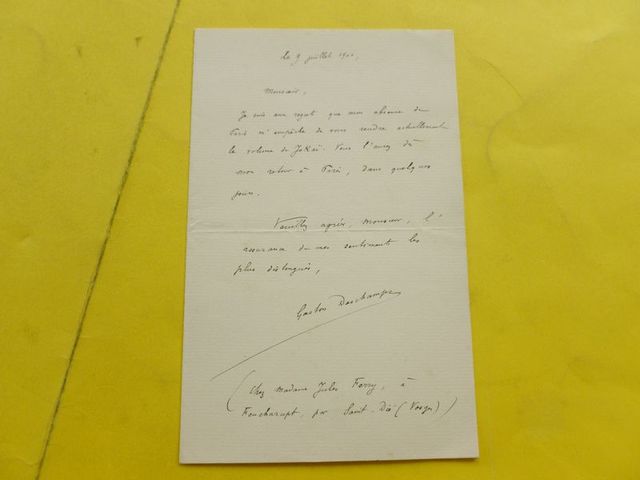 le 9 juillet 1900,
Monsieur,
Je suis au regret que mon absence de
Paris m'empêche de vous rendre actuellement
le volume de Jokaï. Vous l'aurez dès
mon retour à Paris, dans quelques
jours.
Veuillez agréer, monsieur, l'
assurance de mes sentiments les
plus distingués,
Gaston Deschamps
(Chez Madame Jules Ferry, à
Foucharupt, par Saint-Dié (Vosges))